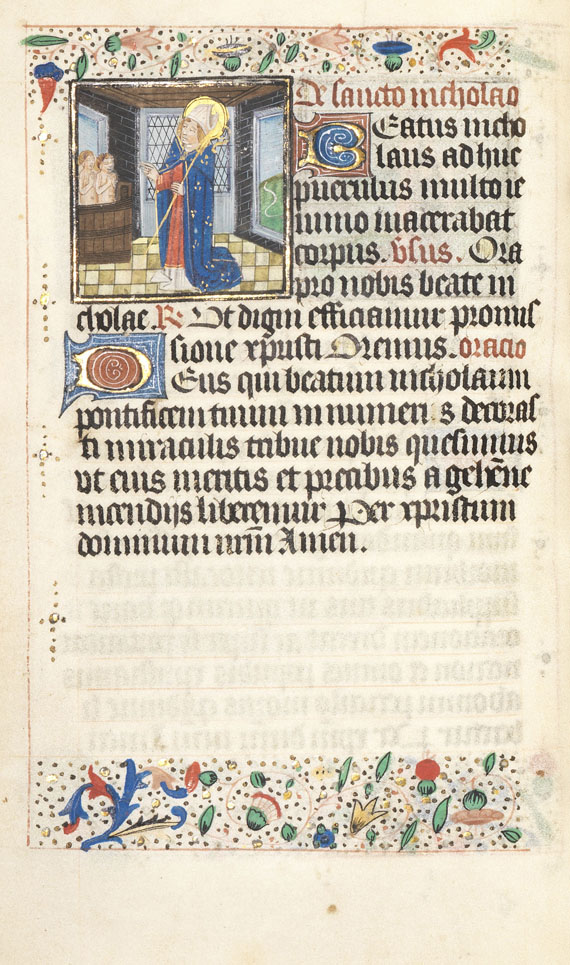 De sancto nicholao
Beatus nicho
laus adhuc
puerulus multo ie
iunio macerabat
corpus. vsus. Ora
pro nobis beate ni
cholae. R. Vt digni efficiamur promis
sione xpristi Oremus. oracio
Deus qui beatum nicholaum
pontificem tuum innumeri s decoras
ti miraculis tribue nobis quesumus
vt eius meritis et precibus a gehēne
incendijs liberemur Per xpristum
dominum nr̄m Amen.